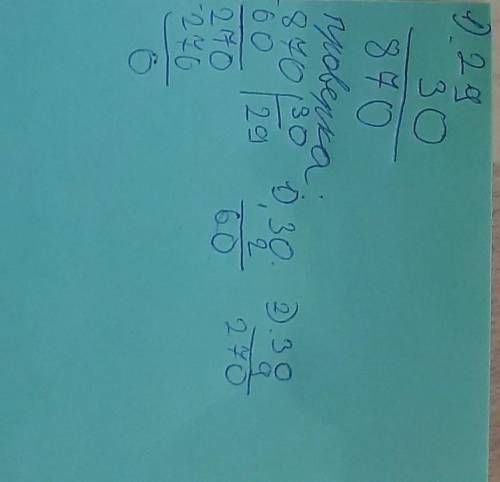 1). 29
30
870
проверка:
- 870 | 30
60 29
270
- 270
0
1). 30
2
60
2). 30
9
270